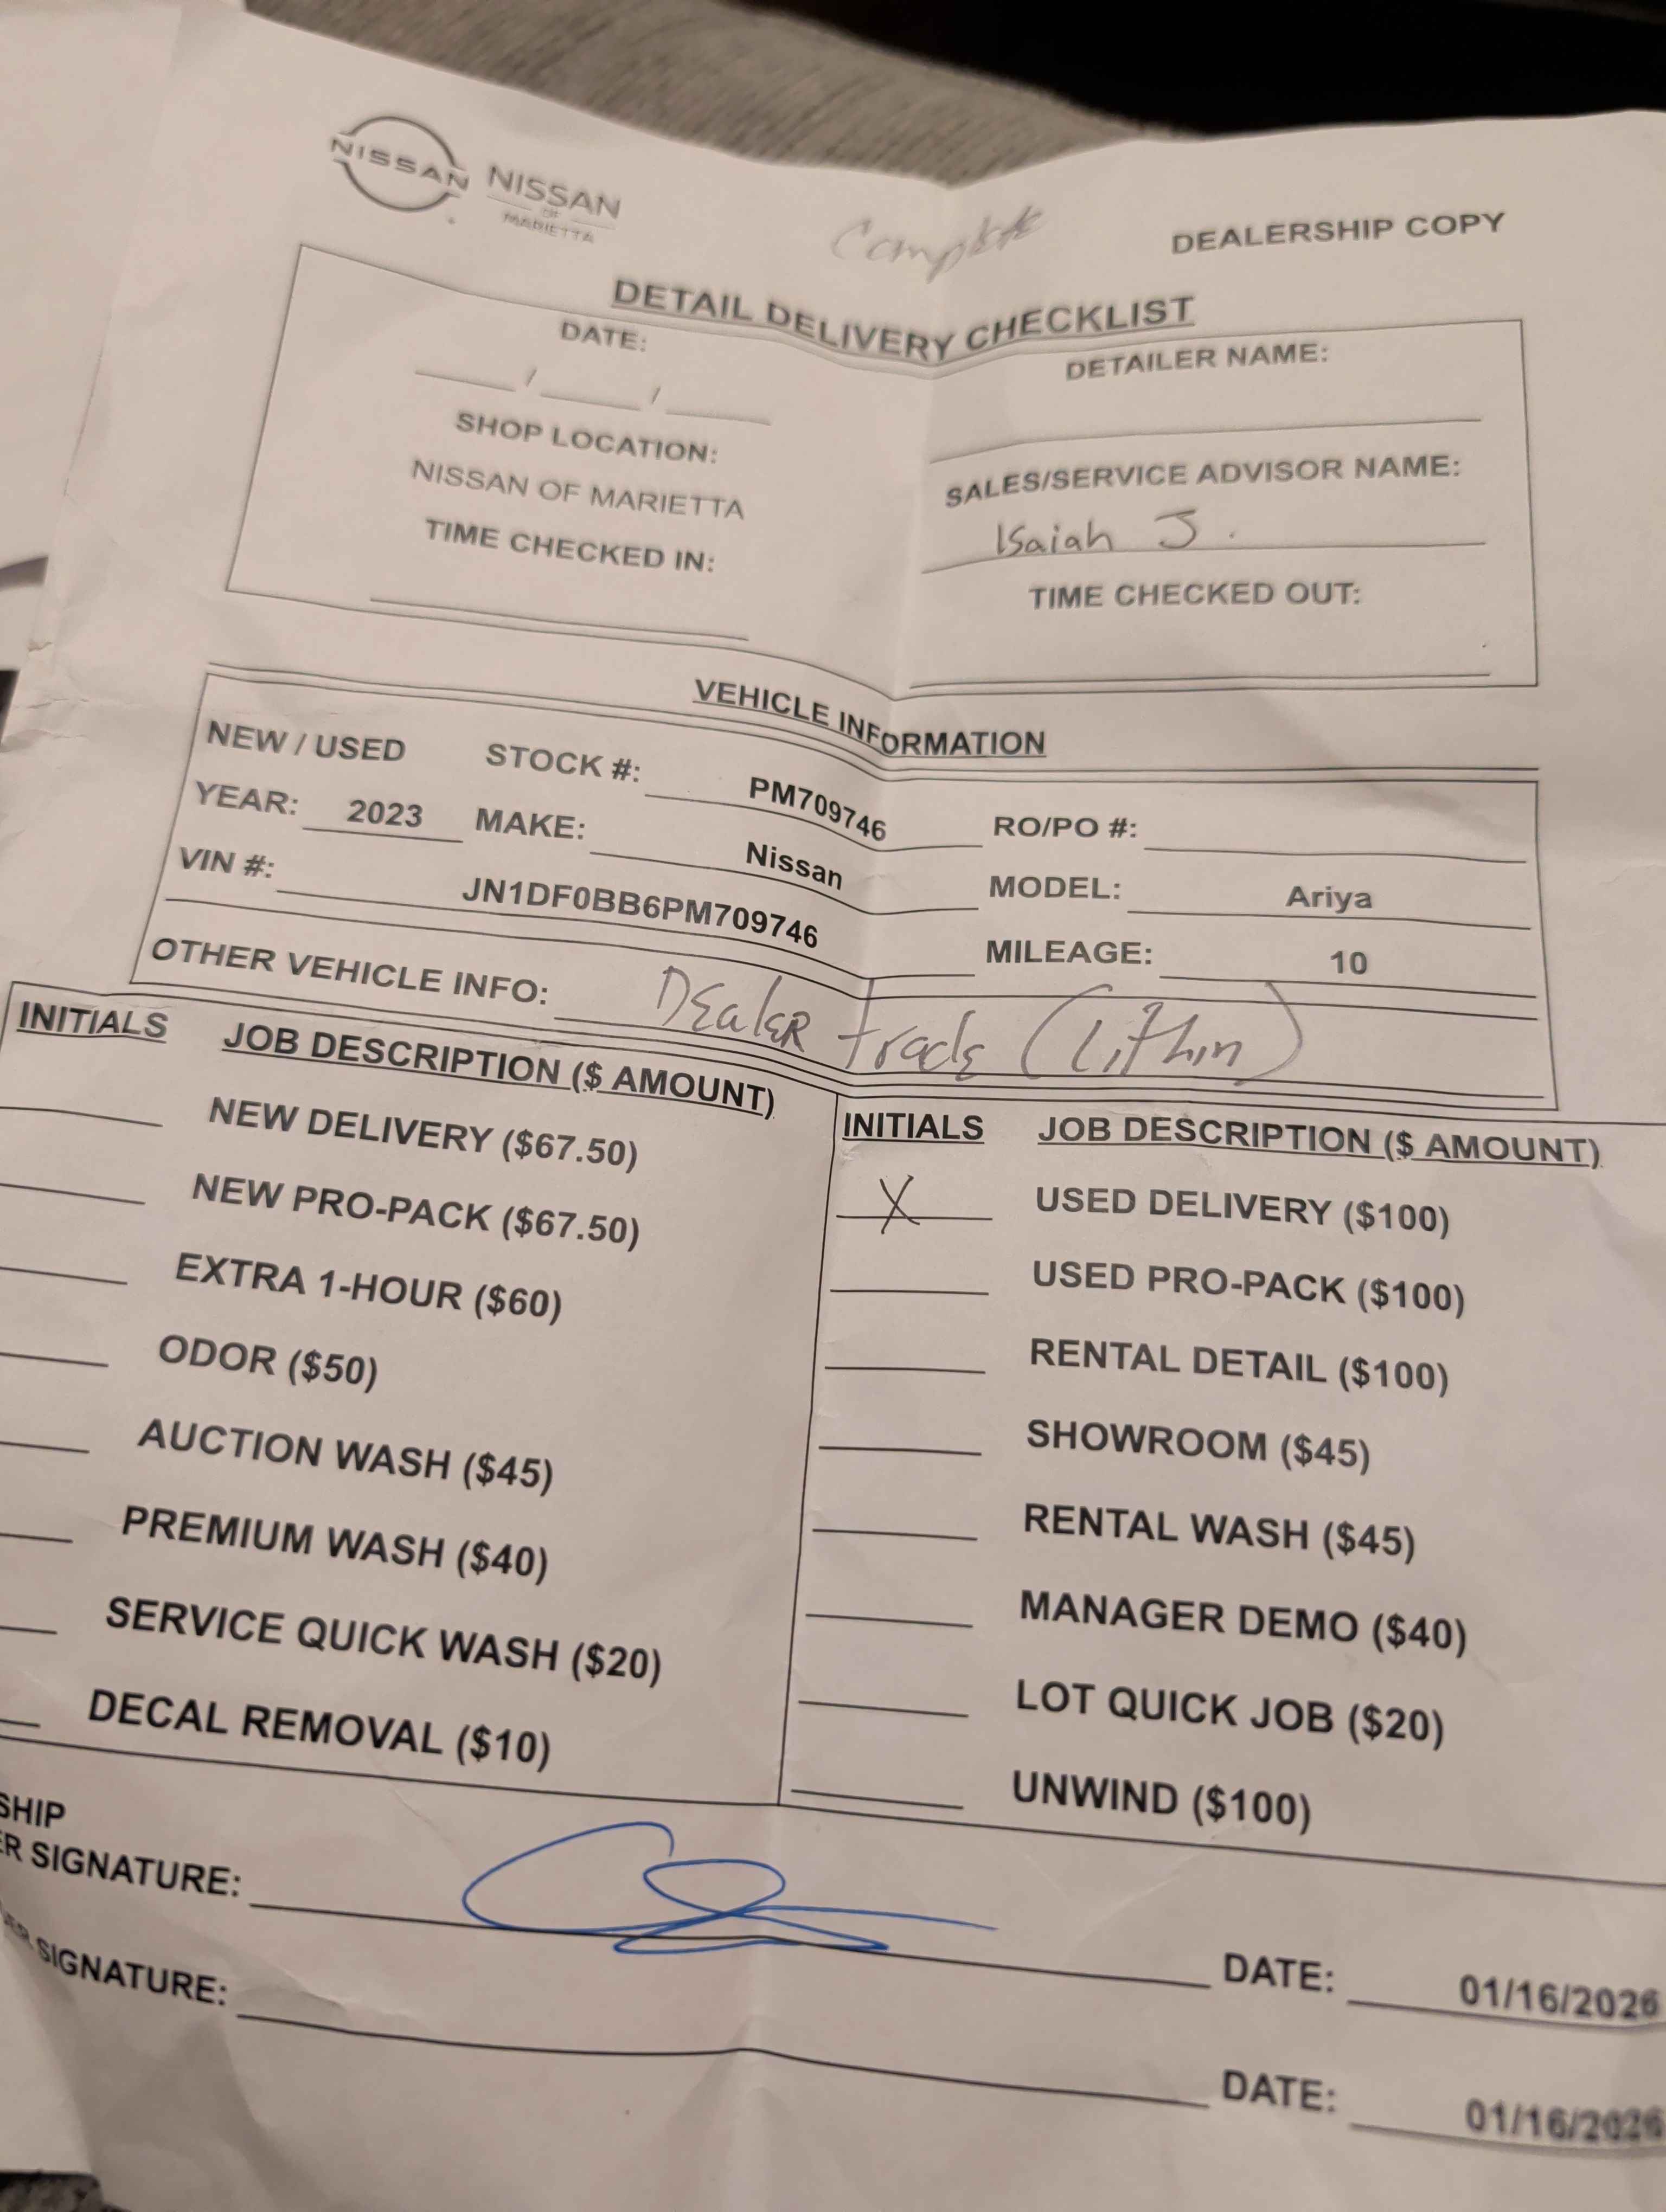 NISSAN
NISSAN
OF
MARIETTA
Complete
DEALERSHIP COPY
DETAIL DELIVERY CHECKLIST
DATE:
/ /
SHOP LOCATION:
NISSAN OF MARIETTA
TIME CHECKED IN:
DETAILER NAME:
SALES/SERVICE ADVISOR NAME:
Isaiah J.
TIME CHECKED OUT:
VEHICLE INFORMATION
NEW / USED STOCK #: PM709746 RO/PO #:
YEAR: 2023 MAKE: Nissan MODEL: Ariya
VIN #: JN1DF0BB6PM709746 MILEAGE: 10
OTHER VEHICLE INFO: Dealer trade (Lithin)
INITIALS JOB DESCRIPTION ($ AMOUNT)
NEW DELIVERY ($67.50)
NEW PRO-PACK ($67.50)
EXTRA 1-HOUR ($60)
ODOR ($50)
AUCTION WASH ($45)
PREMIUM WASH ($40)
SERVICE QUICK WASH ($20)
DECAL REMOVAL ($10)
INITIALS JOB DESCRIPTION ($ AMOUNT)
X USED DELIVERY ($100)
USED PRO-PACK ($100)
RENTAL DETAIL ($100)
SHOWROOM ($45)
RENTAL WASH ($45)
MANAGER DEMO ($40)
LOT QUICK JOB ($20)
UNWIND ($100)
SHIP
ER SIGNATURE: DATE: 01/16/2026
SIGNATURE: DATE: 01/16/2026